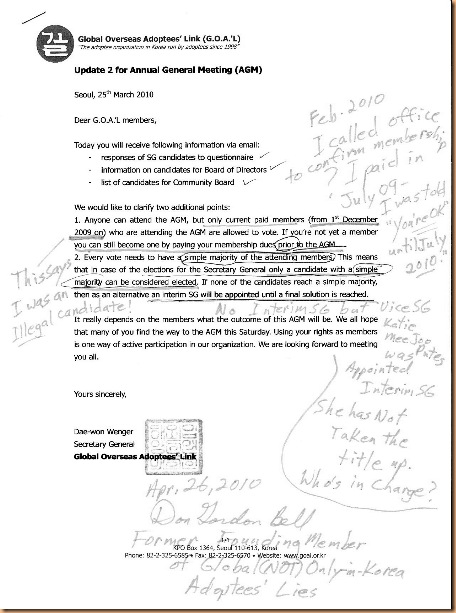 걸
Global Overseas Adoptees' Link (G.O.A.'L)
"The adoptee organization in Korea run by adoptees since 1998"
Update 2 for Annual General Meeting (AGM)
Seoul, 25th March 2010
Dear G.O.A.'L members,
Today you will receive following information via email:
- responses of SG candidates to questionnaire
- information on candidates for Board of Directors
- list of candidates for Community Board
Feb. 2010
I called office
to confirm membership
I paid in
July 09-
I was told
"you're OK"
until July
2010.
We would like to clarify two additional points:
1. Anyone can attend the AGM, but only current paid members (from 1st December
2009 on) who are attending the AGM are allowed to vote. If you're not yet a member
you can still become one by paying your membership dues prior to the AGM.
2. Every vote needs to have a simple majority of the attending members. This means
that in case of the elections for the Secretary General only a candidate with a simple
majority can be considered elected. If none of the candidates reach a simple majority,
then as an alternative an interim SG will be appointed until a final solution is reached.
This says
I was an
Illegal candidate!
No Interim SG but Vice SG
Katie
Mee Joe
was
Appointed
Interim SG
She has Not
Taken the
title up.
Who's in Charge?
It really depends on the members what the outcome of this AGM will be. We all hope
that many of you find the way to the AGM this Saturday. Using your rights as members
is one way of active participation in our organization. We are looking forward to meeting
you all.
Yours sincerely,
Dae-won Wenger
Secretary General
Global Overseas Adoptees' Link
Apr. 26, 2010
Don Gordon Bell
Former Founding Member
of Global (NOT) Only-in-Korea
Adoptees' Lies
KPO Box 1364, Seoul 110-613, Korea
Phone: 82-2-325-6585 • Fax: 82-2-325-6570 • Website: www.goal.or.kr